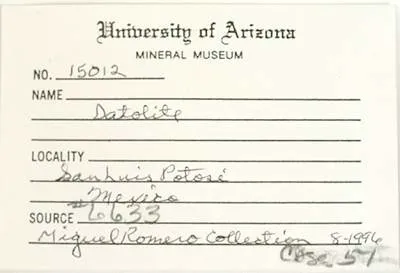 University of Arizona
MINERAL MUSEUM
NO. 15012
NAME
Datolite
LOCALITY
San Luis Potosi
Mexico
SOURCE #6633
Miguel Romero Collection 8-1996
Case 51